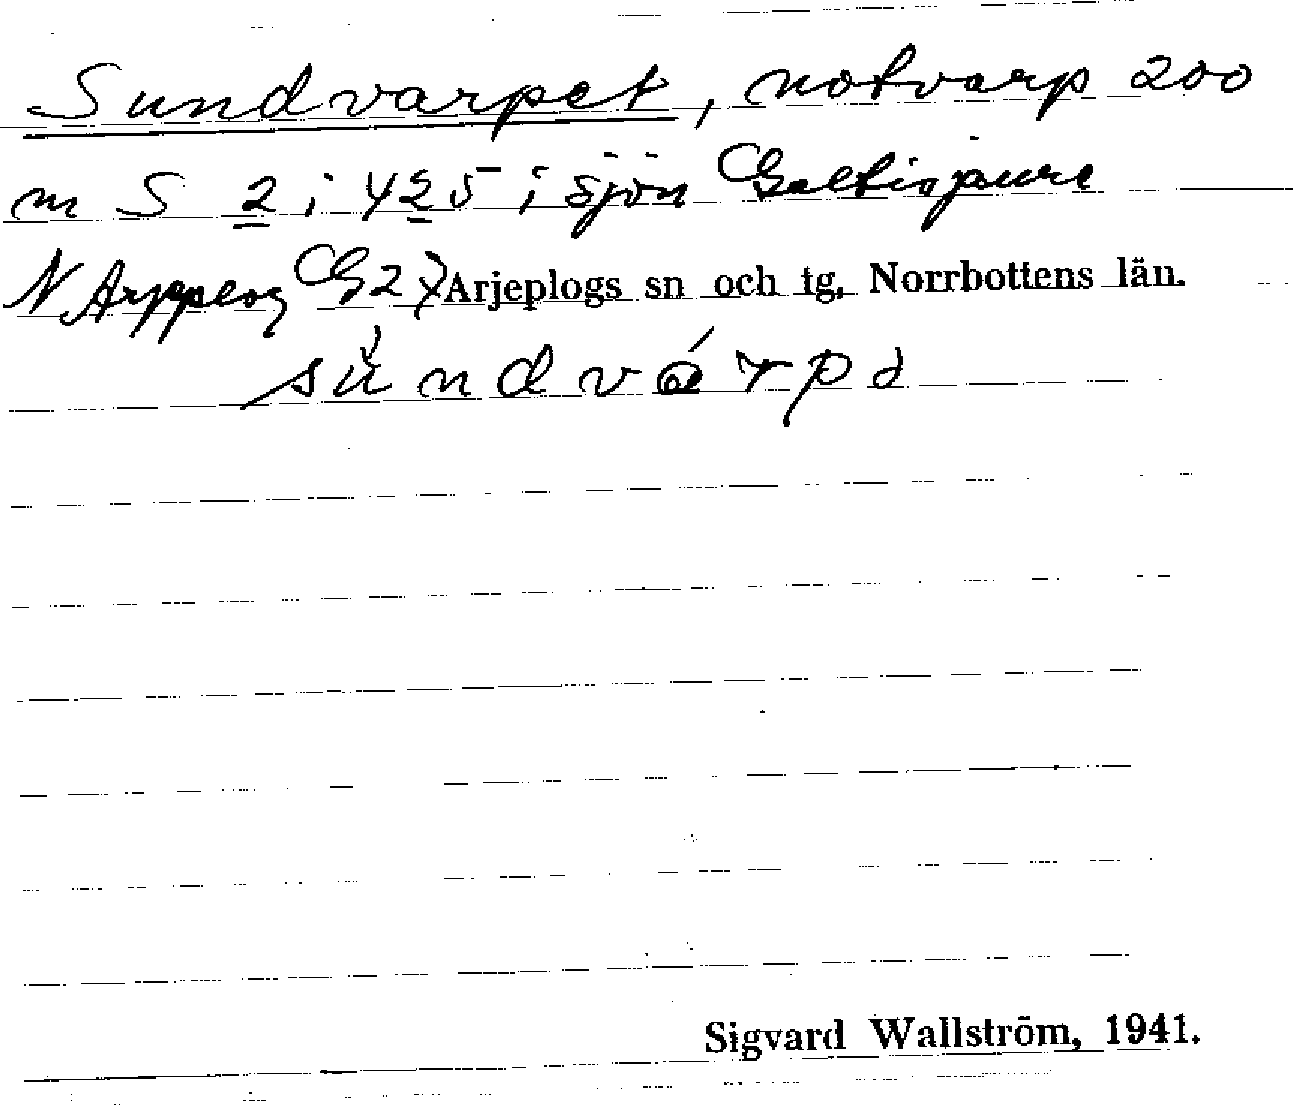 Sundvarpet, notvarp 200
m S 2 i 425 i sjön Galtisjaure
N Arjeplog G2) Arjeplogs sn och tg, Norrbottens län.
sundvárpə
Sigvard Wallström, 1941.